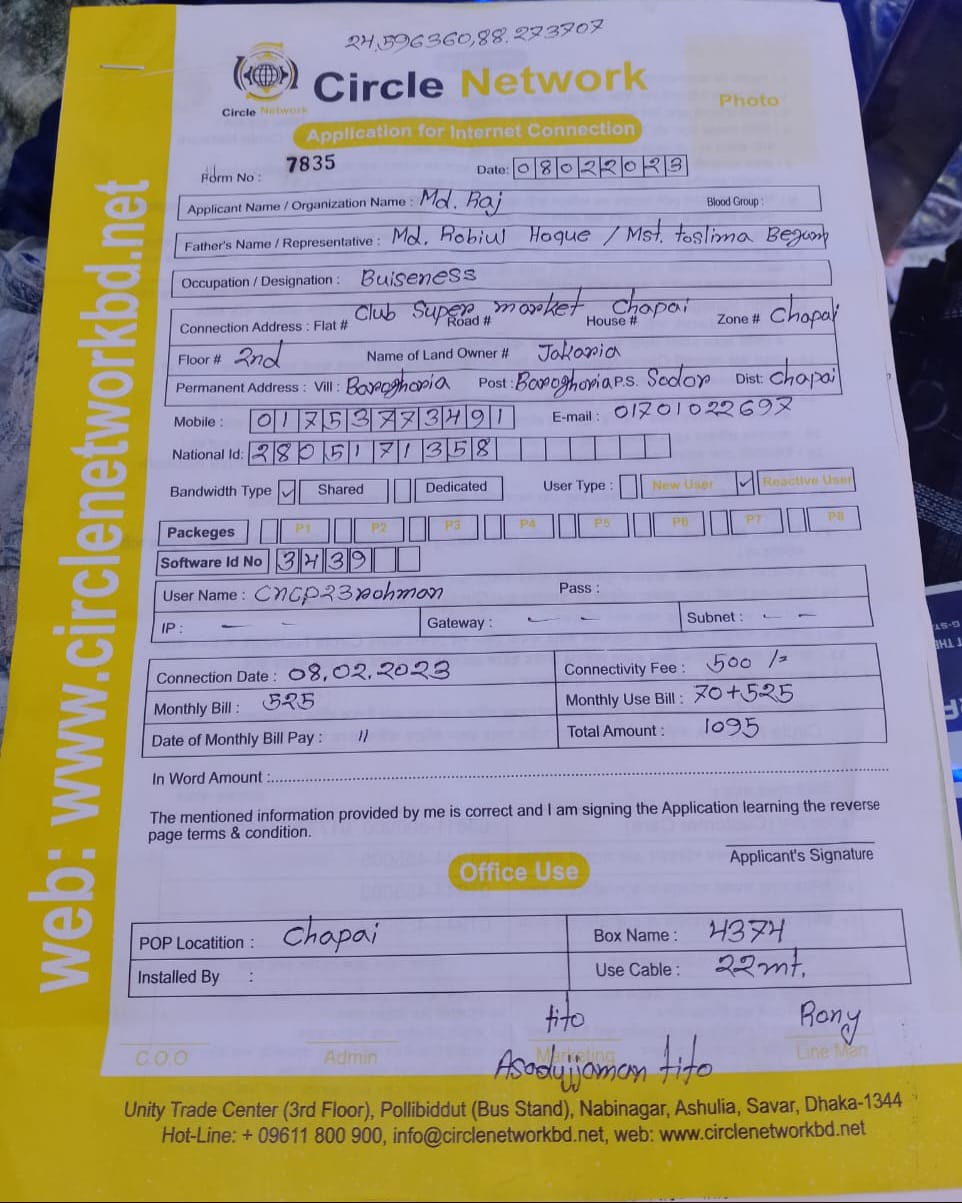 24.596360,88.273707
Circle Network
Circle Network
Photo
Application for Internet Connection
Form No : 7835 Date: 08022023
Applicant Name / Organization Name : Md. Raj Blood Group :
Father's Name / Representative : Md. Robiul Hoque / Mst. toslima Begum
Occupation / Designation : Buiseness
Connection Address : Flat # Club Super market Chapai Road # House # Zone # Chapai
Floor # 2nd Name of Land Owner # Jakaria
Permanent Address : Vill : Baroghoria Post : Baroghoria P.S. Sodor Dist: Chapai
Mobile : 01753773491 E-mail : 01701022697
National Id: 2805171358
Bandwidth Type ✓ Shared Dedicated User Type : New User ✓ Reactive User
Packeges P1 P2 P3 P4 P5 P6 P7 P8
Software Id No 3439
User Name : CNCP23rohman Pass :
IP : - - Gateway : - - Subnet : - -
Connection Date : 08.02.2023 Connectivity Fee : 500 /=
Monthly Bill : 525 Monthly Use Bill : 70+525
Date of Monthly Bill Pay : 11 Total Amount : 1095
In Word Amount :
The mentioned information provided by me is correct and I am signing the Application learning the reverse
page terms & condition.
Applicant's Signature
Office Use
POP Locatition : Chapai Box Name : 4374
Installed By : Use Cable : 22mt.
tito Rony
C.O.O Admin Marketing Line Man
Asadujjaman tito
Unity Trade Center (3rd Floor), Pollibiddut (Bus Stand), Nabinagar, Ashulia, Savar, Dhaka-1344
Hot-Line: + 09611 800 900, info@circlenetworkbd.net, web: www.circlenetworkbd.net
web: www.circlenetworkbd.net